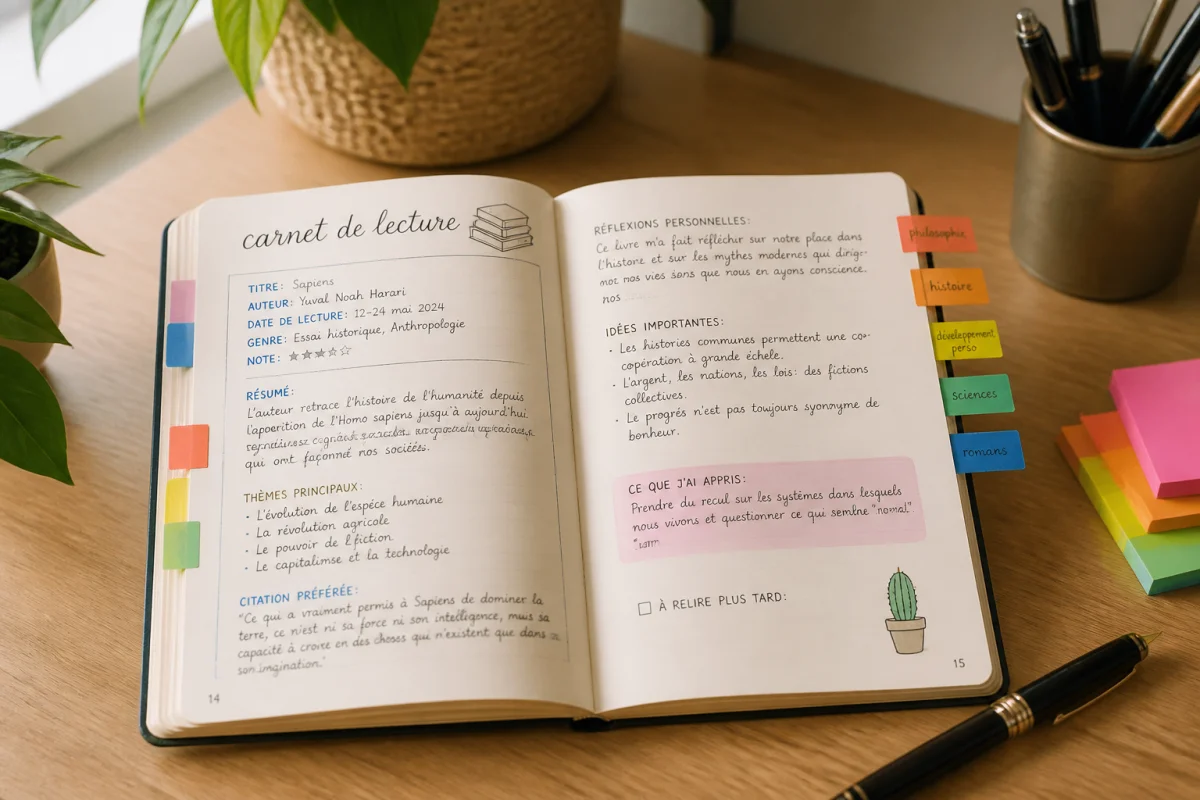 carnet de lecture
TITRE: Sapiens
AUTEUR: Yuval Noah Harari
DATE DE LECTURE: 12-24 mai 2024
GENRE: Essai historique, Anthropologie
NOTE: ★★★☆☆
RÉSUMÉ:
L'auteur retrace l'histoire de l'humanité depuis
l'apperition de l'Homo sapiens jusqu'à aujourd'hui.
qui ont façonné nos sociétés.
THÈMES PRINCIPAUX:
• L'évolution de l'espèce humaine
• La révolution agricole
• Le pouvoir de l'fiction
• Le capitalimse et la technologie
CITATION PRÉFÉRÉE:
"Ce qui a vraiment permis à Sapiens de dominer la
terre, ce n'est ni sa force ni son intelligence, mais sa
capacité à croire en des choses qui n'existent que dans
son imagination."
14
RÉFLEXIONS PERSONNELLES:
Ce livre m'a fait réfléchir sur notre place dans
l'histore et sur les mythes modernes qui dirig-
not nos vies sans que nous en ayons conscience.
nos
IDÉES IMPORTANTES:
• Les histories communes permettent une co-
copération à grande échele.
• L'argent, les nations, les lois: des fictions
collectives.
• Le progrés n'eit pas toujours synonyme de
bonheur.
CE QUE J'AI APPRIS:
Prendre du recul sur les systèmes dans lesquels
nous vivons et questionner ce qui semlne "normal"
À RELIRE PLUS TARD:
15
philosophie
histoire
développement
perso
sciences
romans